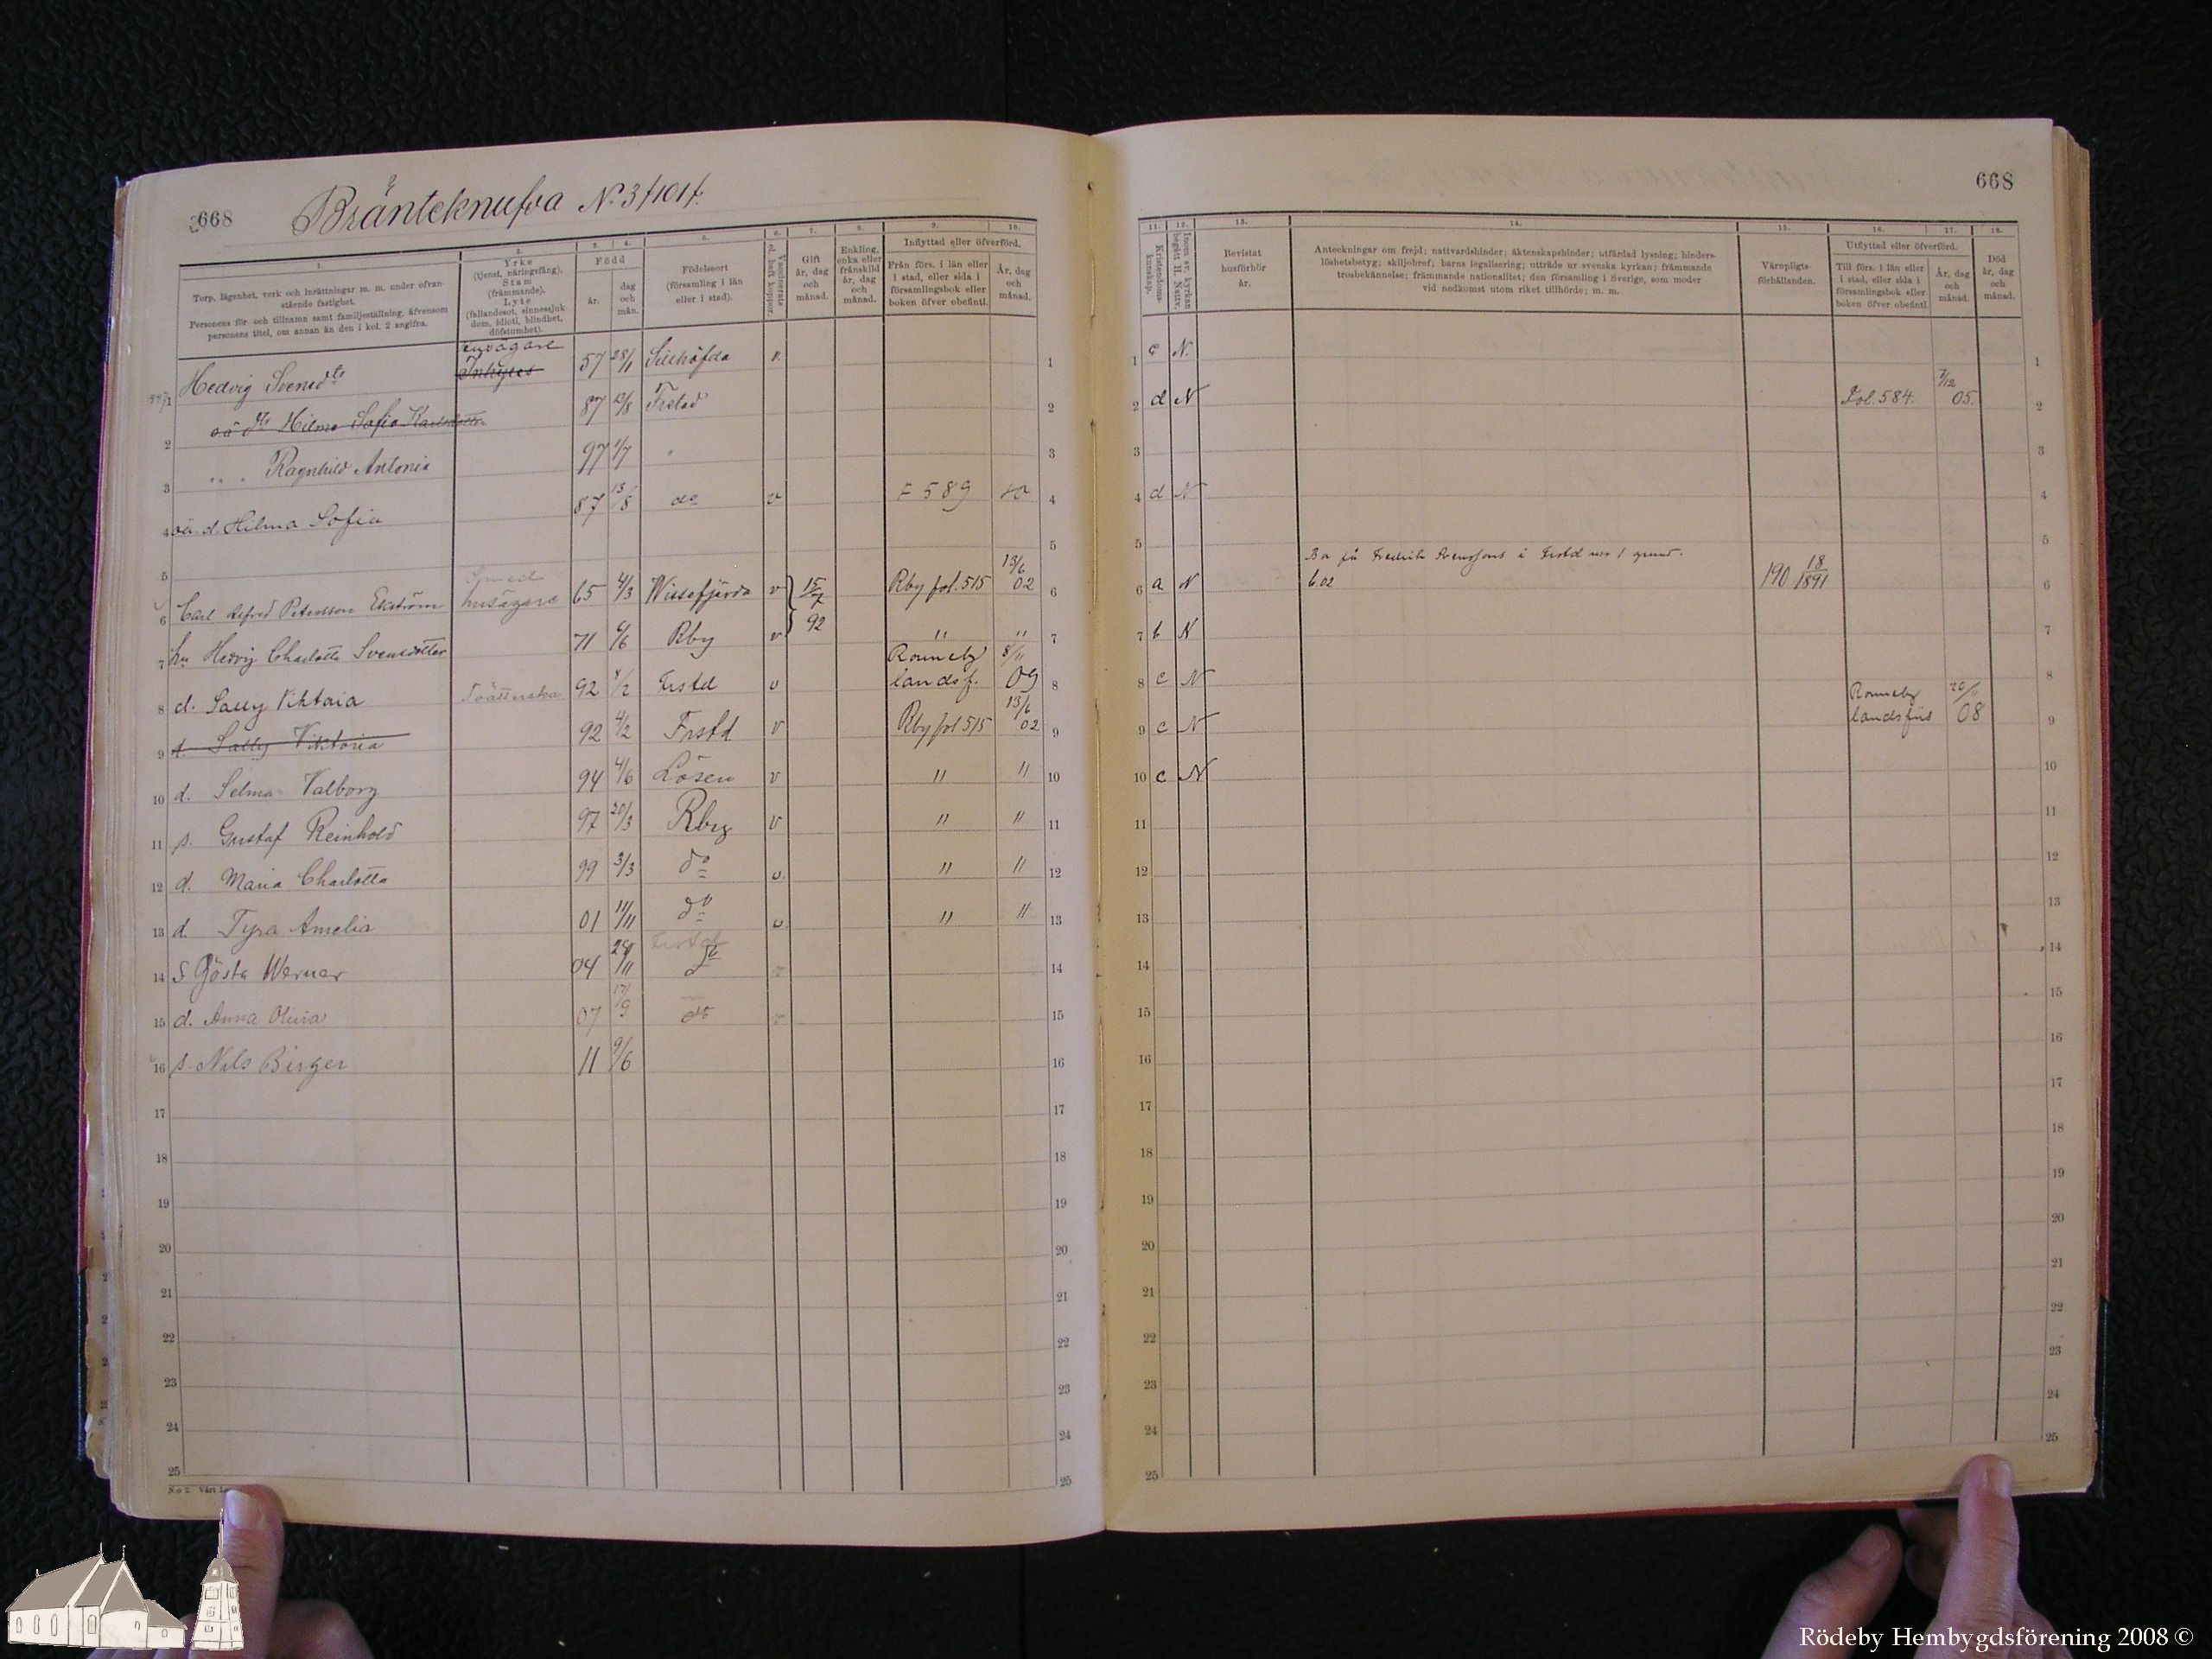 668 Bränteknufva No 3 f 101 f. 668
1. 2. 3. 4. 5. 6. 7. 8. 9. 10.
Torp, lägenhet, verk och inrättningar m. m. under ofvan-
stående fastighet.
Personens för- och tillnamn samt familjeställning, äfvensom
personens titel, om annan än den i kol. 2 angifna.
Yrke
(tjenst, näringsfång).
Stam
(främmande).
Lyte
(fallandesot, sinnessjuk-
dom, idioti, blindhet,
döfstumhet).
Född
år. dag
och
mån.
Födelseort
(församling i län
eller i stad).
Vaccinerats
el. haft koppor.
Gift
år, dag
och
månad.
Enkling,
enka eller
frånskild
år, dag
och
månad.
Inflyttad eller öfverförd.
Från förs. i län eller
i stad, eller sida i
församlingsbok eller
boken öfver obefintl.
År, dag
och
månad.
11. 12. 13. 14. 15. 16. 17. 18.
Kristendoms-
kunskap.
Inom sv. kyrkan
begått H. Nattv.
Bevistat
husförhör
år.
Anteckningar om frejd; nattvardshinder; äktenskapshinder; utfärdad lysning; hinders-
löshetsbetyg; skiljobref; barns legalisering; utträde ur svenska kyrkan; främmande
trosbekännelse; främmande nationalitet; den församling i Sverige, som moder
vid nedkomst utom riket tillhörde; m. m.
Värnpligts-
förhållanden.
Utflyttad eller öfverförd.
Till förs. i län eller
i stad, eller sida i
församlingsbok eller
boken öfver obefintl.
År, dag
och
månad.
Död
år, dag
och
månad.
1 Hedvig Svensdtr Inhyses 57 28/1 Sillhöfda v. 1 1 c N. 1
2 oä dtr Hilma Sofia Karlsdotter 87 13/8 Frstad 2 2 d N Fol. 584. 7/12 05. 2
3 " " Ragnhild Antonia 97 1/7 " 3 3 3
4 oä. d. Hilma Sofia 87 13/8 do v F 589 4 4 d N 4
5 5 5 5
6 Carl Alfred Petersson Ekström Smed husägare 65 4/3 Wissefjärda v 15/7 92 Rby fol. 515 13/6 02 6 6 a N 6.02 190 18/1891 6
7 hu Hedvig Charlotta Svensdotter 71 6/6 Rby v " " 7 7 b N 7
8 d. Sally Viktoria 92 4/2 Frstd v Ronneby landsf. 8/11 09 8 8 c N 8
9 d. Sally Viktoria 92 4/2 Frstd v Rby fol 515 13/6 02 9 9 c N Ronneby landsförs 20/11 08 9
10 d. Selma Valborg 94 4/6 Lösen v " " 10 10 c N 10
11 s. Gustaf Reinhold 97 20/3 Rby v " " 11 11 11
12 d. Maria Charlotta 99 3/3 do v. " " 12 12 12
13 d. Tyra Amelia 01 11/11 do v. " " 13 13 13
14 S Gösta Werner 04 Frstd v 14 14 14
15 d. Anna Olivia 07 17/9 do v 15 15 15
16 s. Nils Birger 11 9/6 16 16 16
17 17 17 17
18 18 18 18
19 19 19 19
20 20 20 20
21 21 21 21
22 22 22 22
23 23 23 23
24 24 24 24
25 25 25 25
Rödeby Hembygdsförening 2008 ©